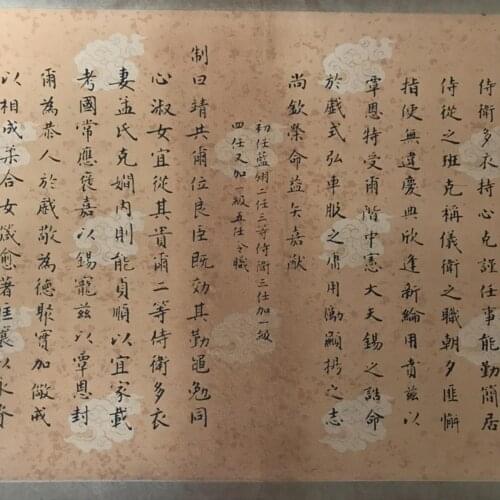 侍衛多衣持心克謹任事能勤簡居
侍從之班克稱儀衛之職朝夕匪懈
指使無違慶典欣逢新綸用賁茲以
覃恩特受爾階中憲大夫錫之誥命
於戲式弘車服之庸用勵顯揚之志
尚欽榮命益矢嘉猷
初任藍翎二任三等侍衛三任加一級
四任又加一級五任今職
制曰靖共爾位良臣既効其勤黽勉同
心淑女宜從其貴爾二等侍衛多衣
妻孟氏克嫻內則能貞順以宜家載
考國常應褒嘉以錫寵茲以覃恩封
爾為恭人於戲敬為德聚實加儆戒
以相成柔合女箴愈著匡襄以永